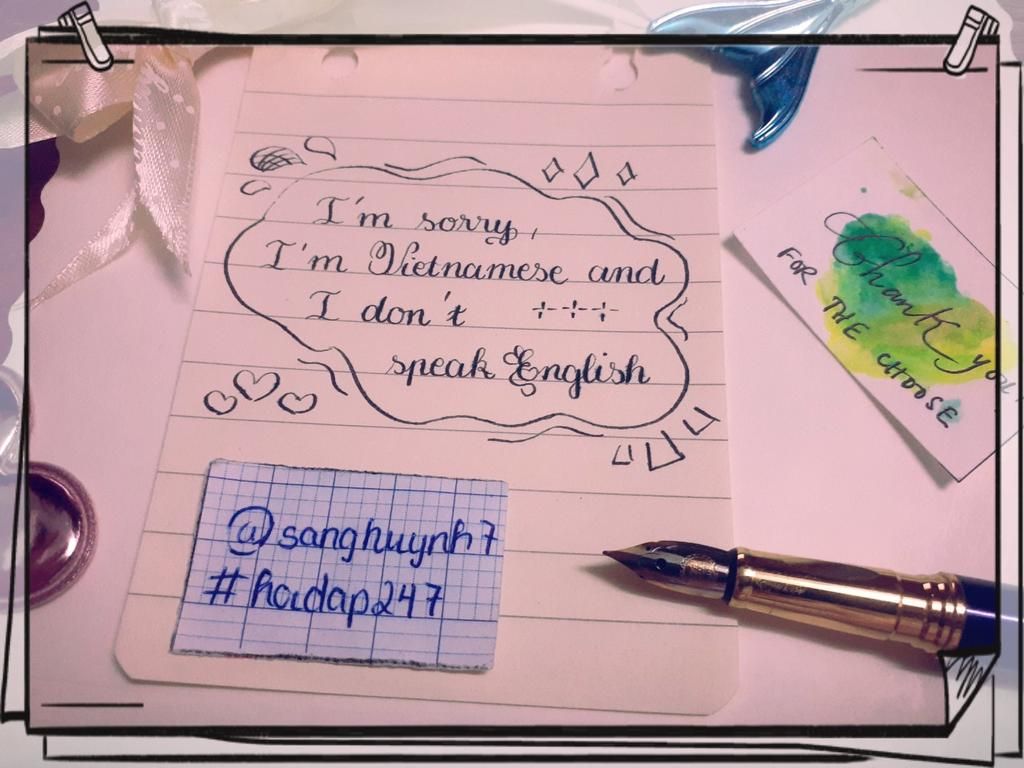 I'm sorry,
I'm Vietnamese and
I don't
speak English
@sanghuynh7
#hoidap247
Thank you
FOR THE CHOOSE